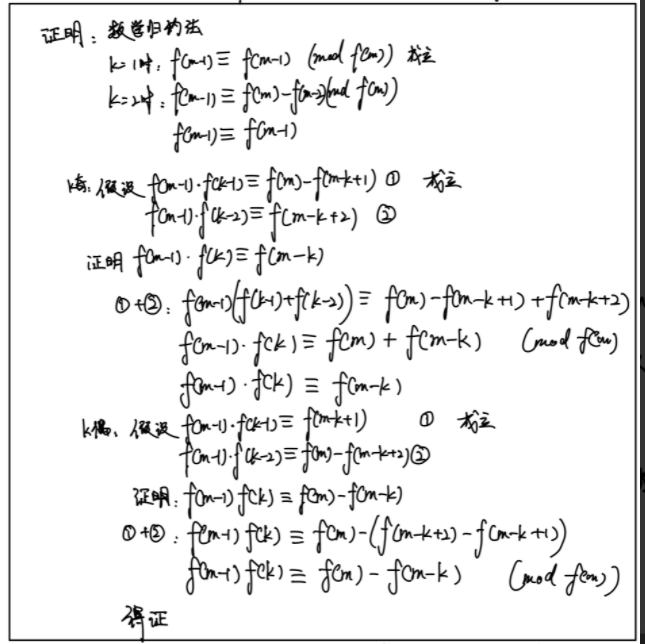 证明：数学归纳法
k=1时：f(m-1)≡f(m-1) (mod f(m)) 成立
k=2时：f(m-1)≡f(m)-f(m-2)(mod f(m))
f(m-1)≡f(m-1)
k奇：假设 f(m-1)·f(k-1)≡f(m)-f(m-k+1) ① 成立
f(m-1)·f(k-2)≡f(m-k+2) ②
证明 f(m-1)·f(k)≡f(m-k)
①+②：f(m-1)(f(k-1)+f(k-2))≡f(m)-f(m-k+1)+f(m-k+2)
f(m-1)·f(k)≡f(m)+f(m-k) (mod f(m))
f(m-1)·f(k)≡f(m-k)
k偶、假设 f(m-1)·f(k-1)≡f(m-k+1) ① 成立
f(m-1)·f(k-2)≡f(m)-f(m-k+2)②
证明：f(m-1)f(k)≡f(m)-f(m-k)
①+②：f(m-1)f(k)≡f(m)-(f(m-k+2)-f(m-k+1))
f(m-1)f(k)≡f(m)-f(m-k) (mod f(m))
得证